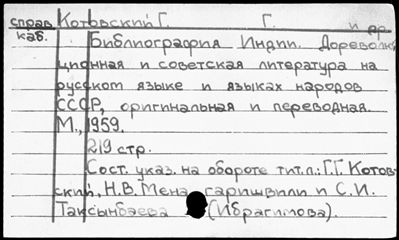 справ Котовский Г. Г. и др.
каб. Библиография Индии. Дореволю-
ционная и советская литература на
русском языке и языках народов
СССР, оригинальная и переводная.
М., 1959.
219 стр.
Сост. указ. на обороте тит.л.: Г.Г. Котов-
ский, Н.В. Мена гаришвили и С.И.
Таксынбаева (Ибрагимова).